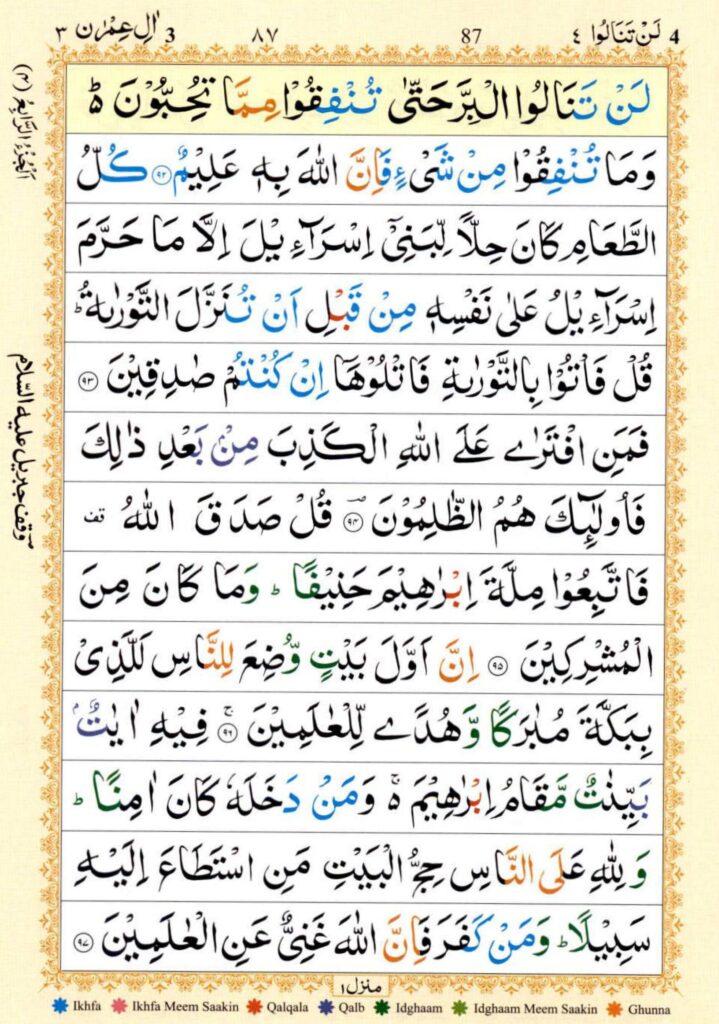 4 لَنْ تَنَالُوا ٤ 87 ٨٧ 3 اٰلِ عِمْرٰن ٣
لَنْ تَنَالُوا الْبِرَّ حَتّٰى تُنْفِقُوْا مِمَّا تُحِبُّوْنَ ؕ
وَمَا تُنْفِقُوْا مِنْ شَىْءٍ فَاِنَّ اللّٰهَ بِهٖ عَلِيْمٌ ﴿٩٢﴾ كُلُّ
الطَّعَامِ كَانَ حِلًّا لِّبَنِىْۤ اِسْرَآءِيْلَ اِلَّا مَا حَرَّمَ
اِسْرَآءِيْلُ عَلٰى نَفْسِهٖ مِنْ قَبْلِ اَنْ تُنَزَّلَ التَّوْرٰىةُ ؕ
قُلْ فَاْتُوْا بِالتَّوْرٰىةِ فَاتْلُوْهَاۤ اِنْ كُنْتُمْ صٰدِقِيْنَ ﴿٩٣﴾
فَمَنِ افْتَرٰى عَلَى اللّٰهِ الْكَذِبَ مِنْۢ بَعْدِ ذٰلِكَ
فَاُولٰٓئِكَ هُمُ الظّٰلِمُوْنَ ﴿٩٤﴾ؔ قُلْ صَدَقَ اللّٰهُ قف
فَاتَّبِعُوْا مِلَّةَ اِبْرٰهِيْمَ حَنِيْفًا ؕ وَمَا كَانَ مِنَ
الْمُشْرِكِيْنَ ﴿٩٥﴾ اِنَّ اَوَّلَ بَيْتٍ وُّضِعَ لِلنَّاسِ لَلَّذِىْ
بِبَكَّةَ مُبٰرَكًا وَّهُدًى لِّلْعٰلَمِيْنَ ﴿٩٦﴾ۚ فِيْهِ اٰيٰتٌۢ
بَيِّنٰتٌ مَّقَامُ اِبْرٰهِيْمَ ۚ وَمَنْ دَخَلَهٗ كَانَ اٰمِنًا ؕ
وَلِلّٰهِ عَلَى النَّاسِ حِجُّ الْبَيْتِ مَنِ اسْتَطَاعَ اِلَيْهِ
سَبِيْلًا ؕ وَمَنْ كَفَرَ فَاِنَّ اللّٰهَ غَنِىٌّ عَنِ الْعٰلَمِيْنَ ﴿٩٧﴾
منزل ١
اَلْجُزْءُ الرَّابِعُ (٤)
وقف جبريل عليه السلام
Ikhfa Ikhfa Meem Saakin Qalqala Qalb Idghaam Idghaam Meem Saakin Ghunna